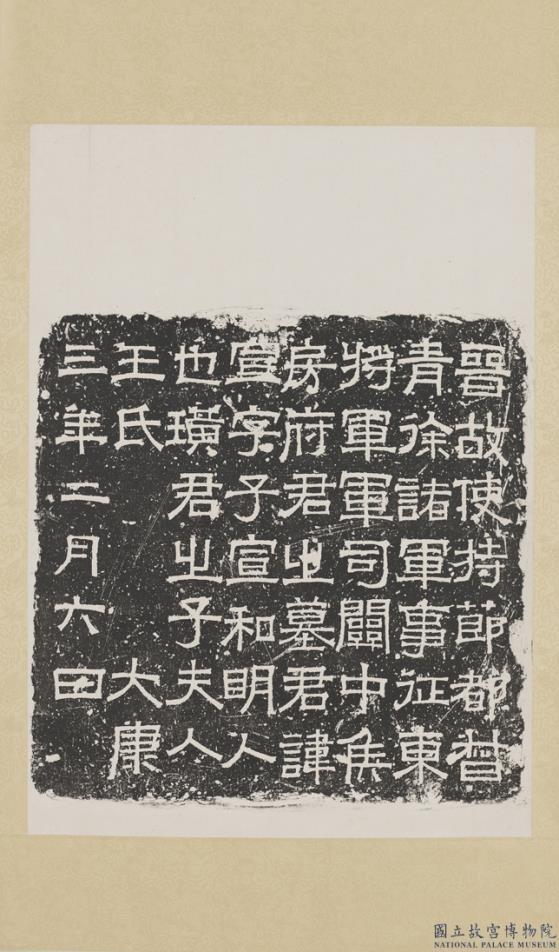 晉故使持節都督
青徐諸軍事征東
將軍軍司關中侯
房府君之墓君諱
宣字子宣和明人
也璜君之子夫人
王氏　大康
三年二月六日
國立故宮博物院
NATIONAL PALACE MUSEUM